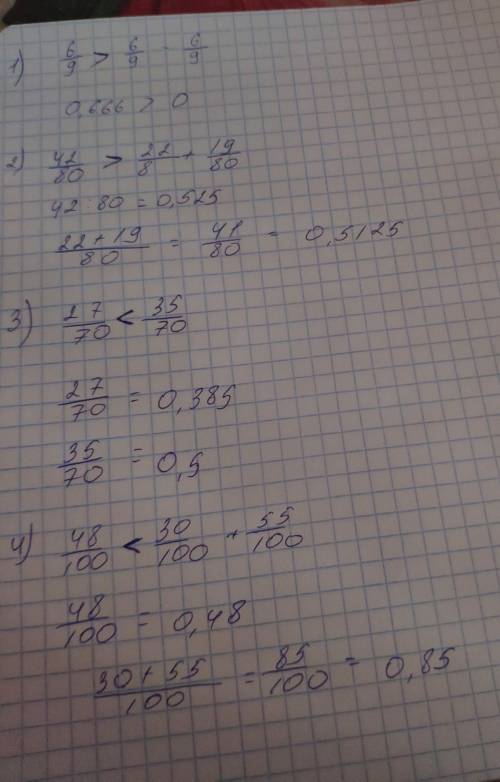 1) 6/9 > 6/9 - 6/9
0,666 > 0
2) 42/80 > 22/8 + 19/80
42:80 = 0,525
22+19/80 = 41/80 = 0,5125
3) 27/70 < 35/70
27/70 = 0,385
35/70 = 0,5
4) 48/100 < 30/100 + 55/100
48/100 = 0,48
30+55/100 = 85/100 = 0,85